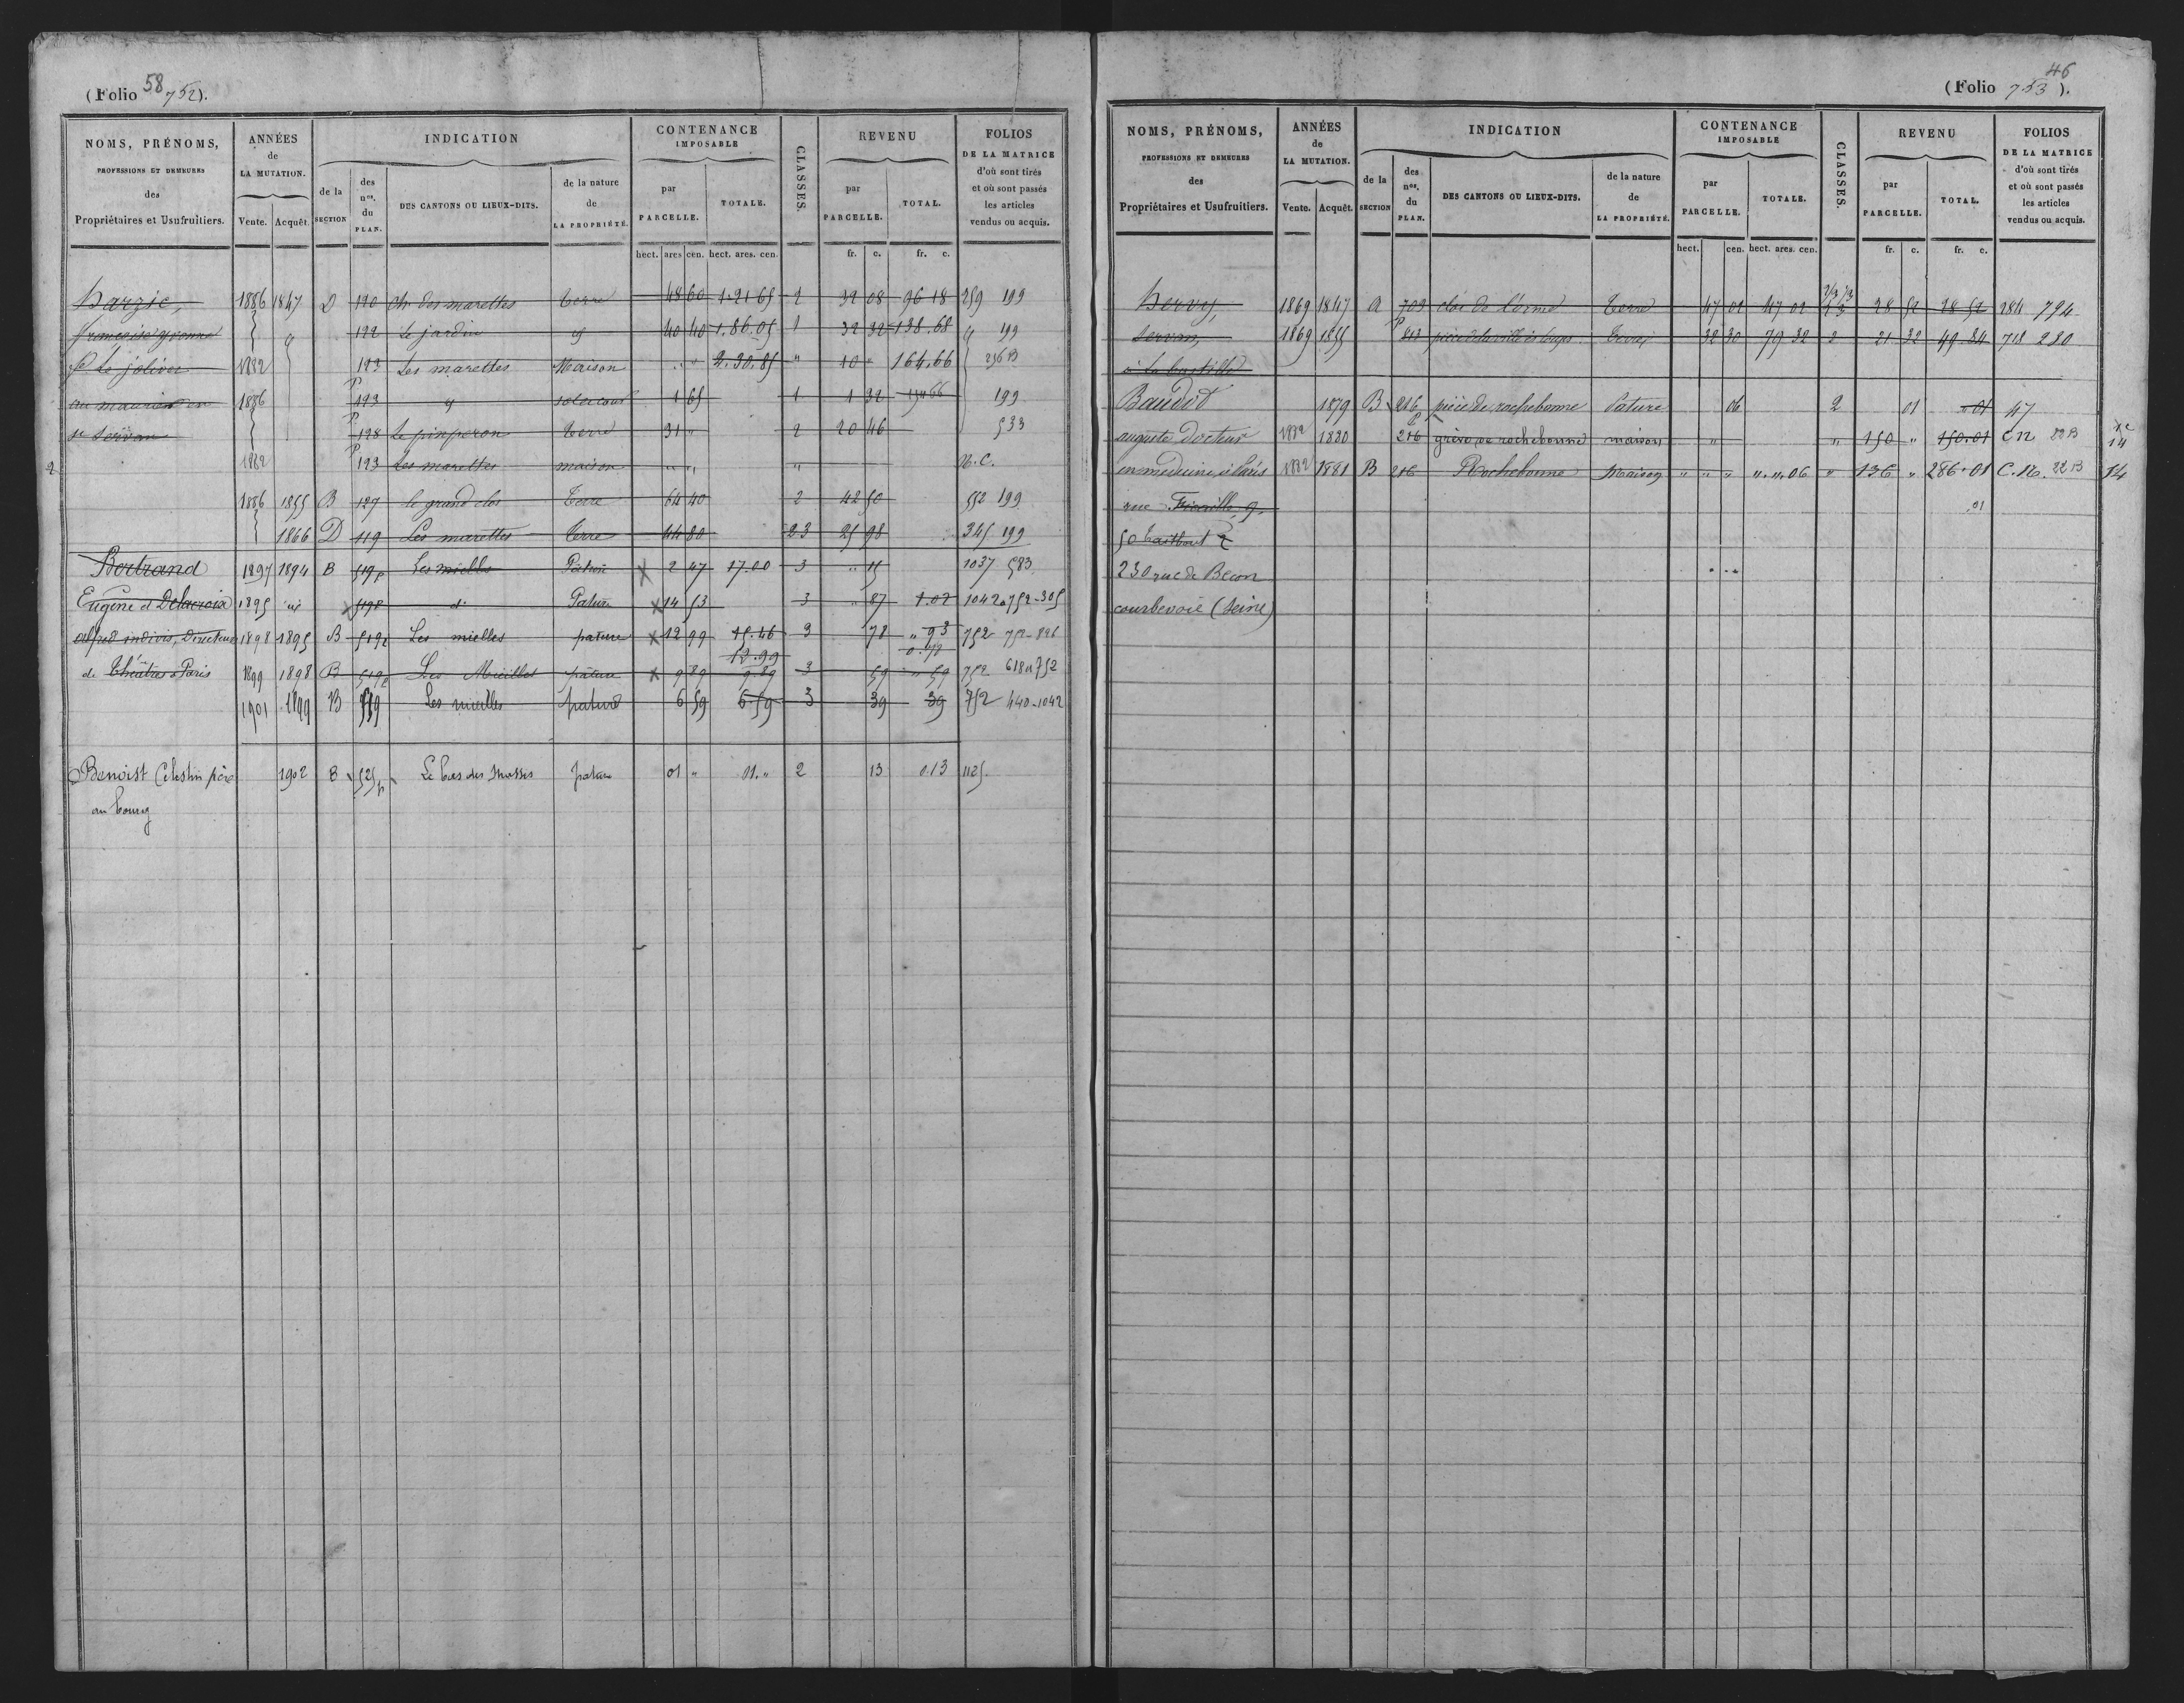 (Folio 58 752).
NOMS, PRÉNOMS, PROFESSIONS ET DEMEURES des Propriétaires et Usufruitiers.
ANNÉES de LA MUTATION. Vente. Acquêt.
INDICATION de la SECTION des nos. du PLAN. DES CANTONS OU LIEUX-DITS. de la nature de LA PROPRIÉTÉ.
CONTENANCE IMPOSABLE par PARCELLE. TOTALE.
CLASSES.
REVENU par PARCELLE. TOTAL.
FOLIOS DE LA MATRICE d'où sont tirés et où sont passés les articles vendus ou acquis.
hect. ares cen. hect. ares. cen. fr. c. fr. c.
1886 1847 D 120 Ch. des marettes terre 48 60 1.21 65 2 32 08 96 18 259 199
122 Le jardin 40 40 1.86.05 1 32 32 138.68 199
1882 123 Les marettes Maison " " 2.30.85 " 10 " 164.66 236 B
au en 1886 P 123 sol et cour 1 65 1 1 32 154 66 199
st servan P 128 terre 31 " 2 20 46 533
2 1882 P 123 Les marettes maison " " " N.C.
1886 1855 B 127 le grand clos Terre 64 40 2 42 50 552 199
1866 D 119 Les marettes terre 44 80 2 3 25 98 345 199
Bertrand 1897 1894 B 519p Les mielles Pature 2 47 17.00 3 " 15 1037 583
Eugène et Delacroix 1895 519p d° Pature 14 53 3 " 87 1.02 1042 752-305
alfred indivis, Directeurs 1898 1895 B 519p Les mielles pature 12 99 15.46 3 78 " 93 752 752-826
12.99 0.78
de théâtres à Paris 1899 1898 B 519p Les Mielles pature 9 89 9.89 3 59 " 59 752 618 752
1901 1899 B 519 Les mielles pature 6 59 6.59 3 39 39 752 440-1042
Benoist Célestin père 1902 B 525p Le bas des pature 01 " 01." 2 13 0.13 1125.
au bourg
(Folio 753 46).
NOMS, PRÉNOMS, PROFESSIONS ET DEMEURES des Propriétaires et Usufruitiers.
ANNÉES de LA MUTATION. Vente. Acquêt.
INDICATION de la SECTION des nos. du PLAN. DES CANTONS OU LIEUX-DITS. de la nature de LA PROPRIÉTÉ.
CONTENANCE IMPOSABLE par PARCELLE. TOTALE.
CLASSES.
REVENU par PARCELLE. TOTAL.
FOLIOS DE LA MATRICE d'où sont tirés et où sont passés les articles vendus ou acquis.
hect. cen. hect. ares. cen. fr. c. fr. c.
Hervy, 1869 1847 A 709 clos de l'orme Terre 47 02 47 02 2 3 28 52 28 52 284 794
servan, 1869 1855 P pièce de la ville ès loups 32 30 79 32 2 21 32 49 84 718 280
à la bastille
Baudot 1879 B 216 pièce de rochebonne Pature 06 2 01 " 01 47
auguste docteur 1882 1880 P 216 grève de rochebonne maison " " 150 " 150.01 C N 22 B 14
en medecine, à Paris 1882 1881 B 216 Rochebonne Maison " " " " " 06 " 136 " 286.01 C.N. 22 B 14
rue 9. .01
50 taitbout
230 rue de Becon
courbevoie (Seine)